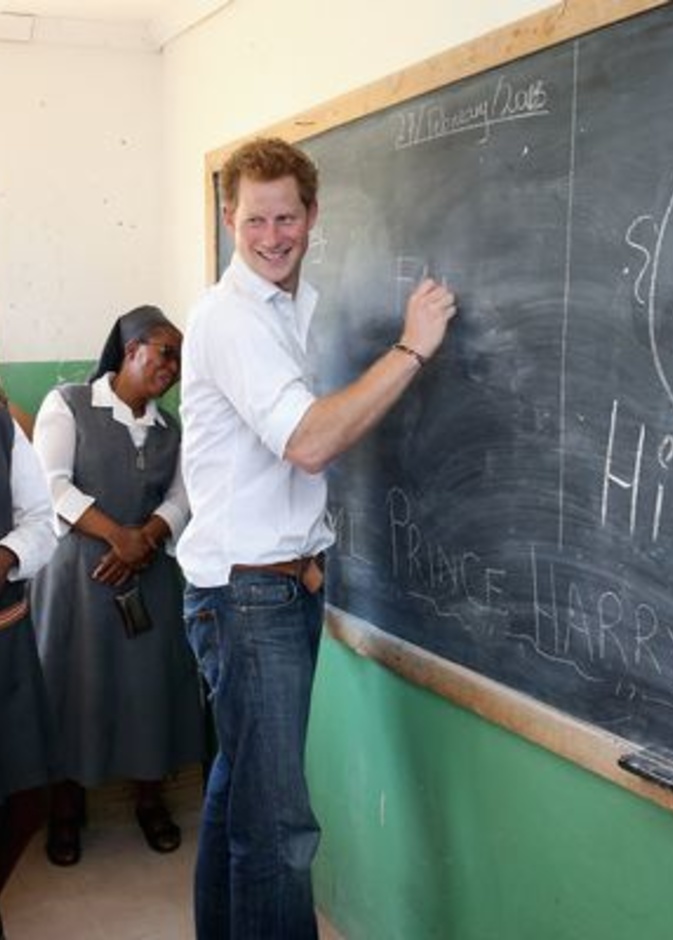 27/February/2013
Hi
PRINCE HARRY